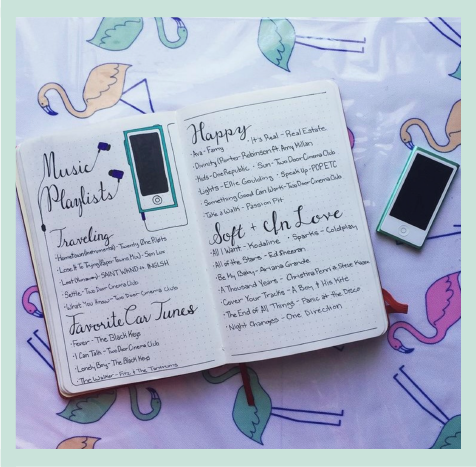 Music
Playlists
Traveling
- Hometown (Instrumental) - Twenty One Pilots
- Settle - Two Door Cinema Club
- What You Know - Two Door Cinema Club
Favorite Car Tunes
- Fever - The Black Keys
- I Can Talk - Two Door Cinema Club
- Lonely Boy - The Black Keys
- The Walker - Fitz & The Tantrums
Happy
- Ava - Famy · It's Real - Real Estate
- Divinity (Porter Robinson ft. Amy Millan
- Kids - One Republic · Sun - Two Door Cinema Club
- Lights - Ellie Goulding · Speak Up - POP ETC
- Something Good Can Work - Two Door Cinema Club
- Take a Walk - Passion Pit
Soft + In Love
- All I Want - Kodaline · Sparks - Coldplay
- All of the Stars - Ed Sheeran
- Be My Baby - Ariana Grande
- A Thousand Years - Christina Perri & Steve Kazee
- Cover Your Tracks - A Boy & His Kite
- The End of All Things - Panic at the Disco
- Night Changes - One Direction